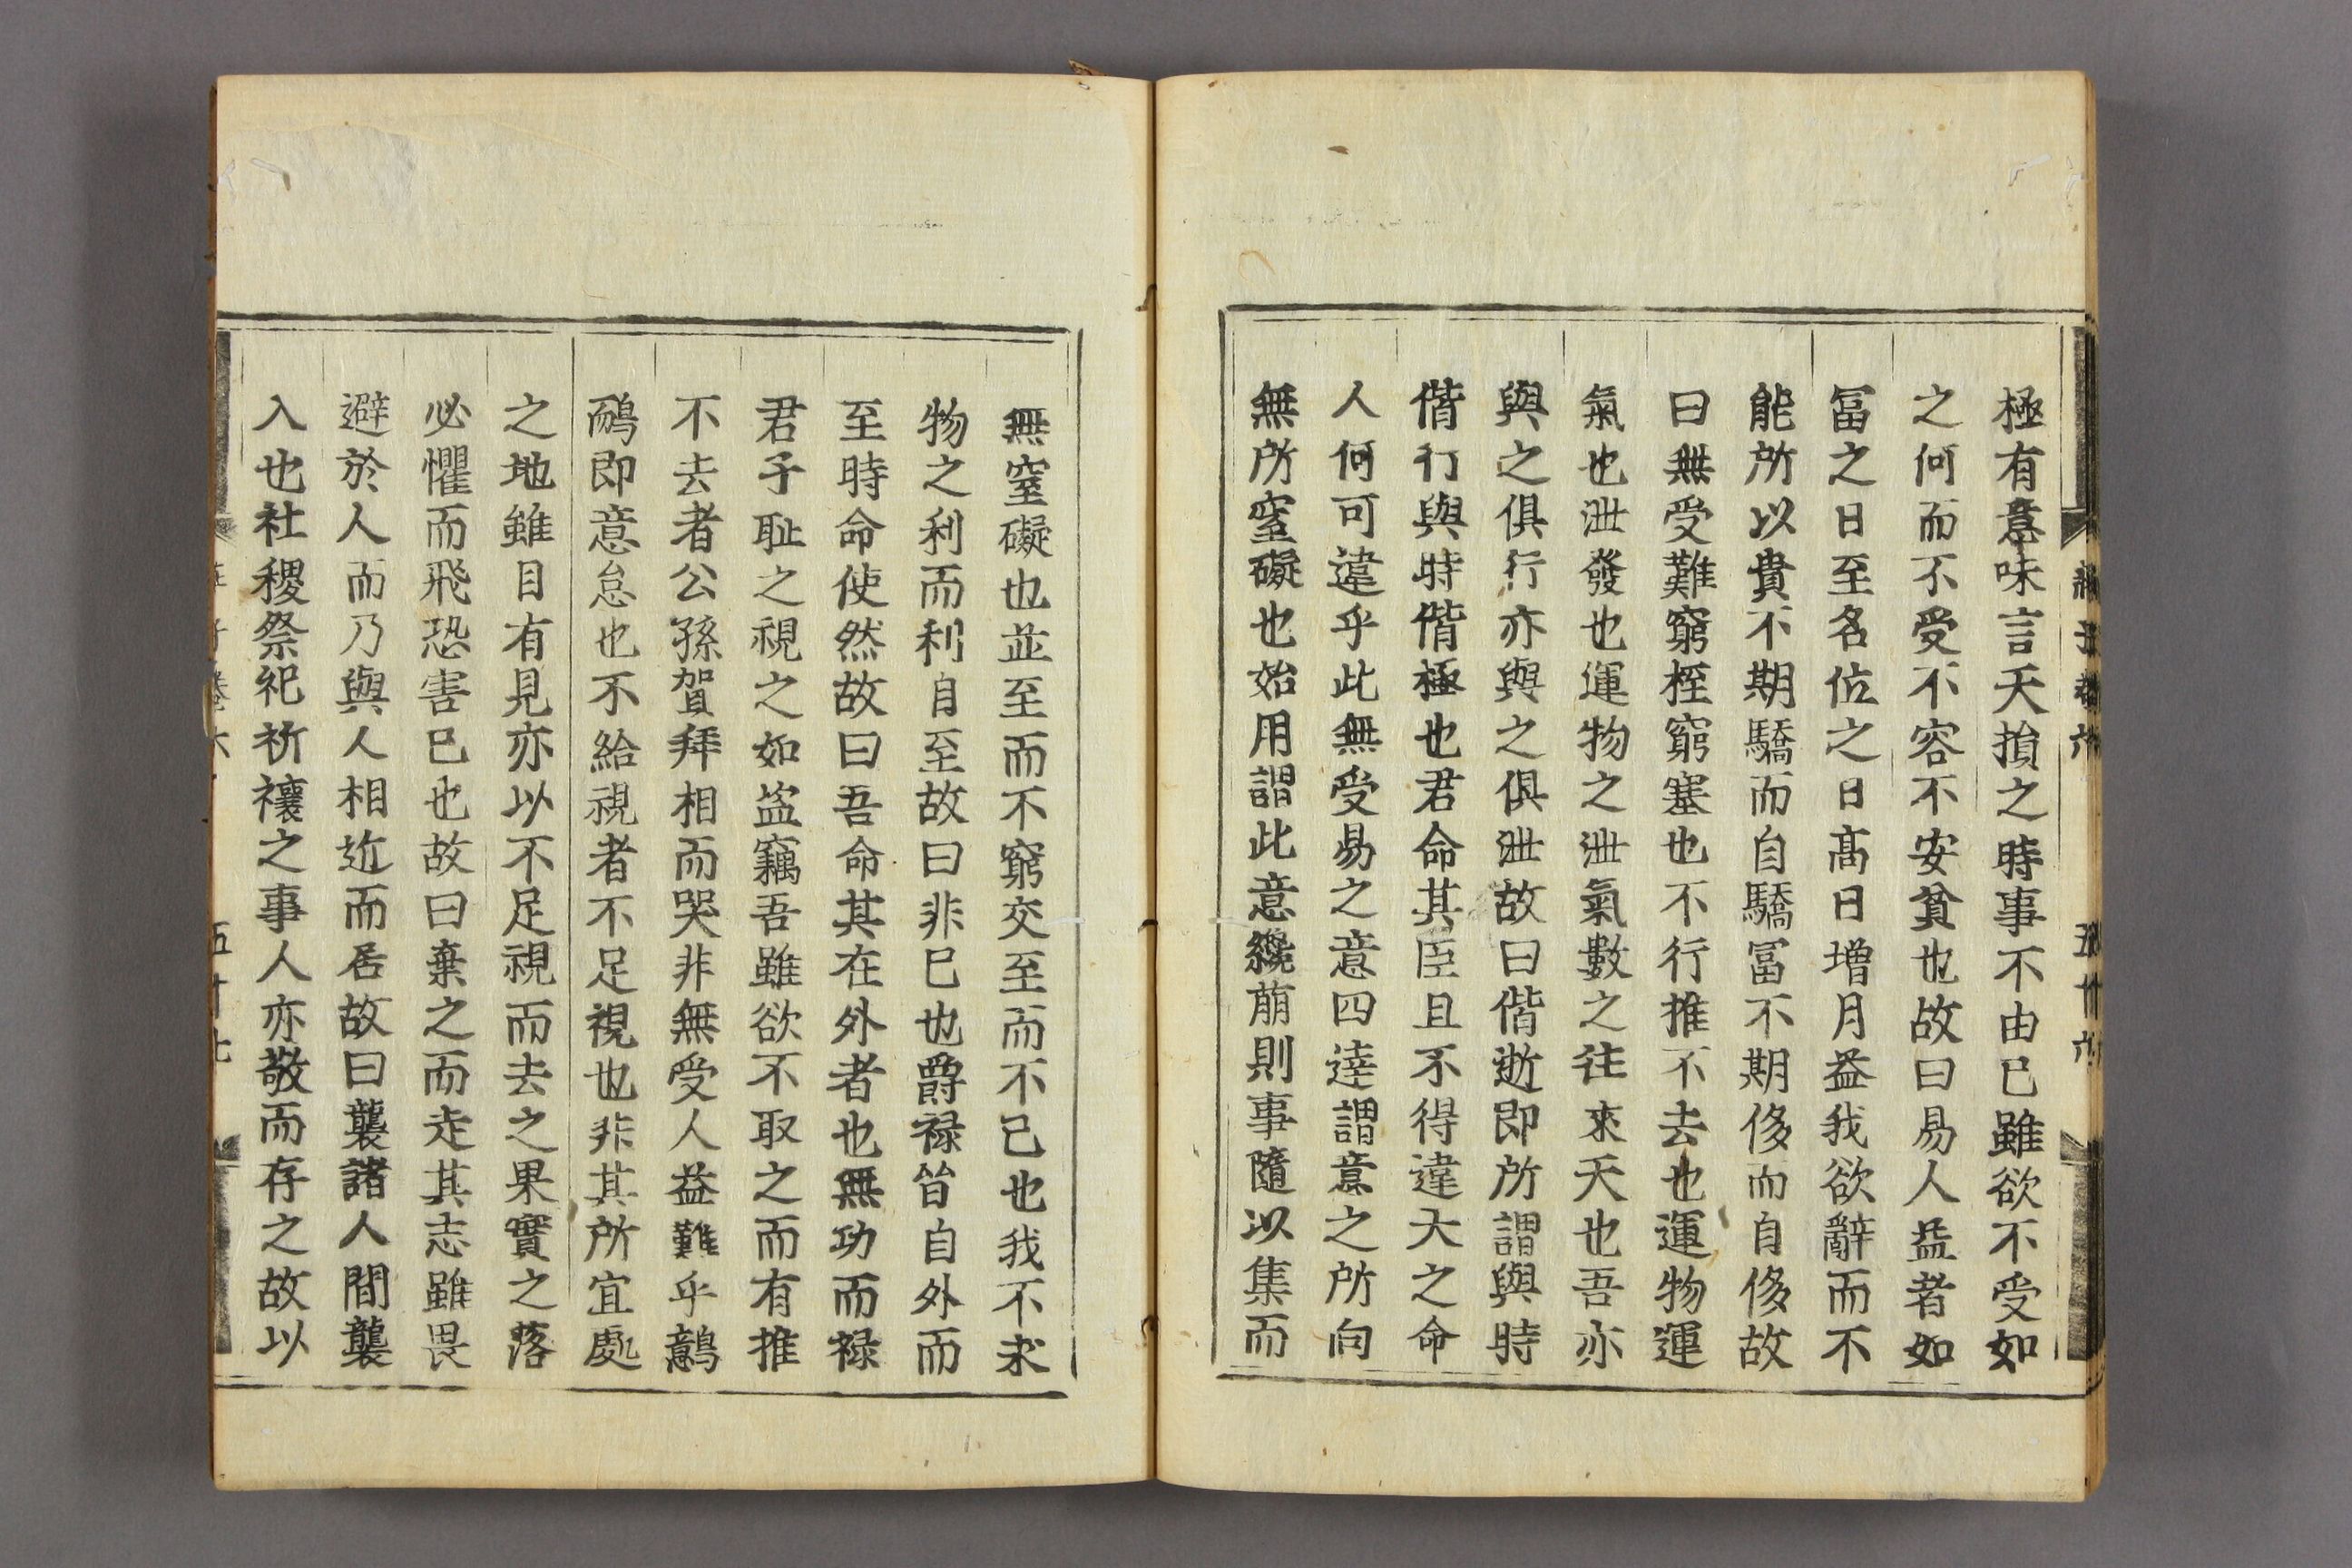 極有意味言天損之時事不由已雖欲不受如
之何而不受不容不安貧也故曰易人益者如
冨之日至名位之日日髙日增月益我欲辭而不
能所以貴不期驕而自驕冨不期侈而自侈故
曰無受難窮桎窮塞也不行推不去也運物運
氣也泄發也運物之泄氣數之往來天也吾亦
與之俱行亦與之俱泄故曰偕逝即所謂與時
偕行與時偕極也君命其臣且不得違大之命
人何可違乎此無受易之意四達謂意之所向
無所窒礙也始用謂此意纔萠則事隨以集而
無窒礙也並至而不窮交至而不已也我不求
物之利而利自至故曰非已也爵禄皆自外而
至時命使然故曰吾命其在外者也無功而禄
君子耻之視之如盜竊吾雖欲不取之而有推
不去者公孫賀拜相而哭非無受人益難乎鷾
鴯即意怠也不給視者不足視也非其所宜處
之地雖目有見亦以不足視而去之果實之落
必懼而飛恐害巳也故曰棄之而走其志雖畏
避於人而乃與人相近而居故曰襲諸人間襲
入也社稷祭祀祈禳之事人亦敬而存之故以